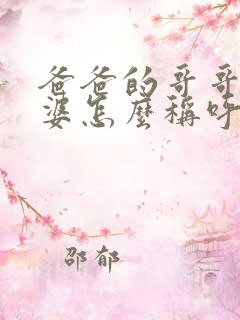 爸爸的哥哥
婆怎麼稱呼
邵郁